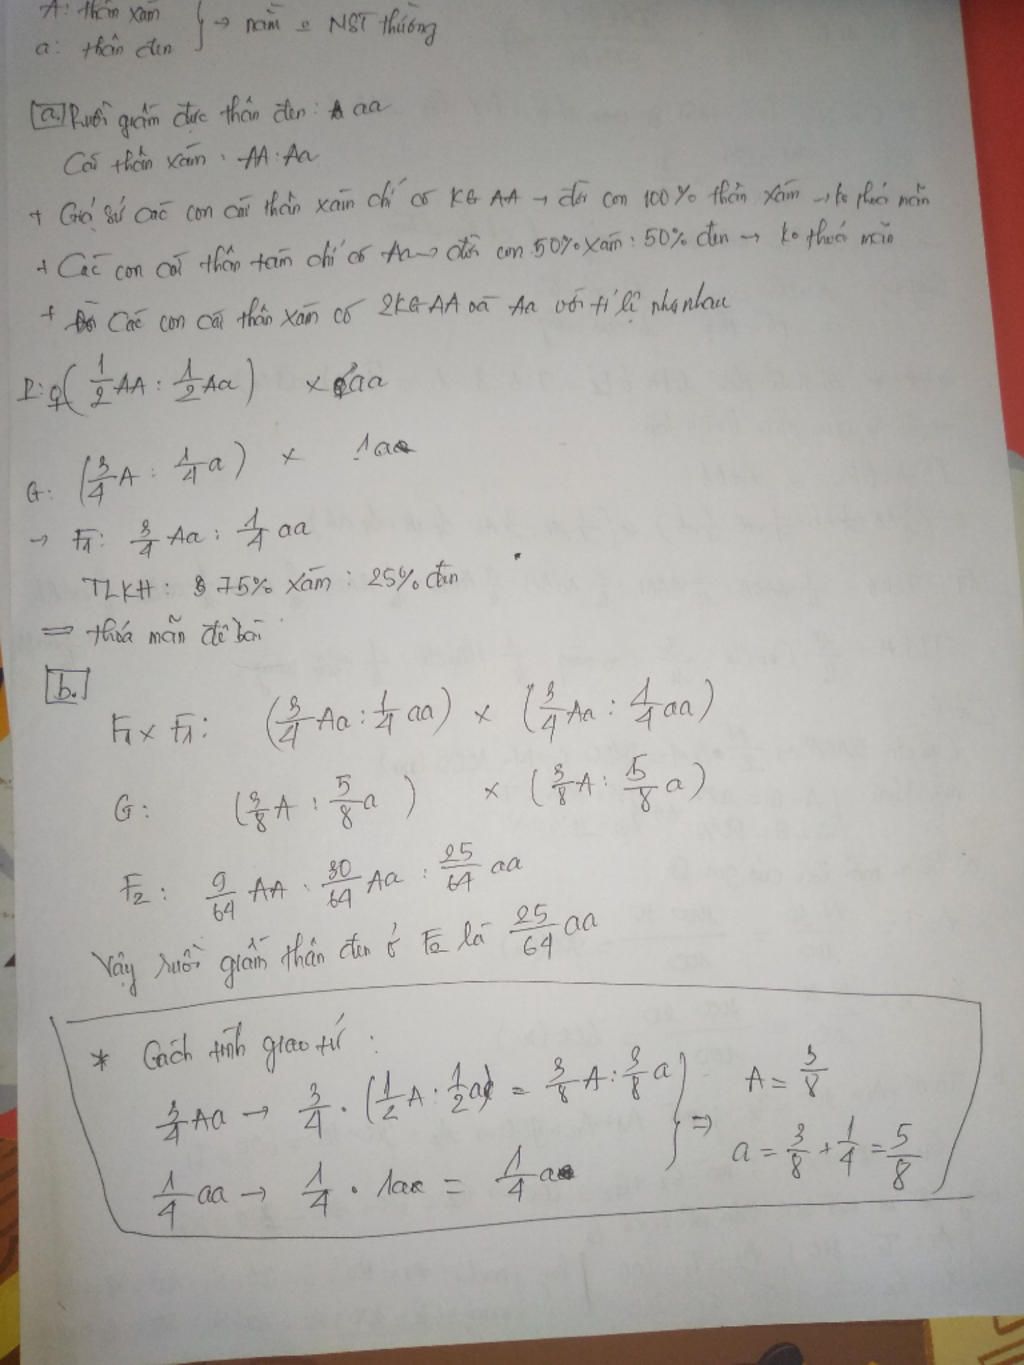 A: thân xám
a: thân đen } → nằm NST thường
[a.] Ruồi giấm đực thân đen: aa
Cái thân xám: AA : Aa
+ Giả sử các con cái thân xám chỉ có KG AA → đời con 100% thân xám → ko thoả mãn
+ Các con cái thân xám chỉ có Aa → đời con 50% xám : 50% đen → ko thoả mãn
+ Các con cái thân xám có 2 KG AA và Aa với tỉ lệ như nhau
P: ♀(1/2 AA : 1/2 Aa) × aa
G: (3/4 A : 1/4 a) × 1a
→ F1: 3/4 Aa : 1/4 aa
TLKH: 75% xám : 25% đen
⇒ thoả mãn đề bài
[b.]
F1 × F1: (3/4 Aa : 1/4 aa) × (3/4 Aa : 1/4 aa)
G: (3/8 A : 5/8 a) × (3/8 A : 5/8 a)
F2: 9/64 AA : 30/64 Aa : 25/64 aa
Vậy ruồi giấm thân đen ở F2 là 25/64 aa
* Cách tính giao tử:
3/4 Aa → 3/4 . (1/2 A : 1/2 a) = 3/8 A : 3/8 a } ⇒ A = 3/8
1/4 aa → 1/4 . 1a = 1/4 a a = 3/8 + 1/4 = 5/8